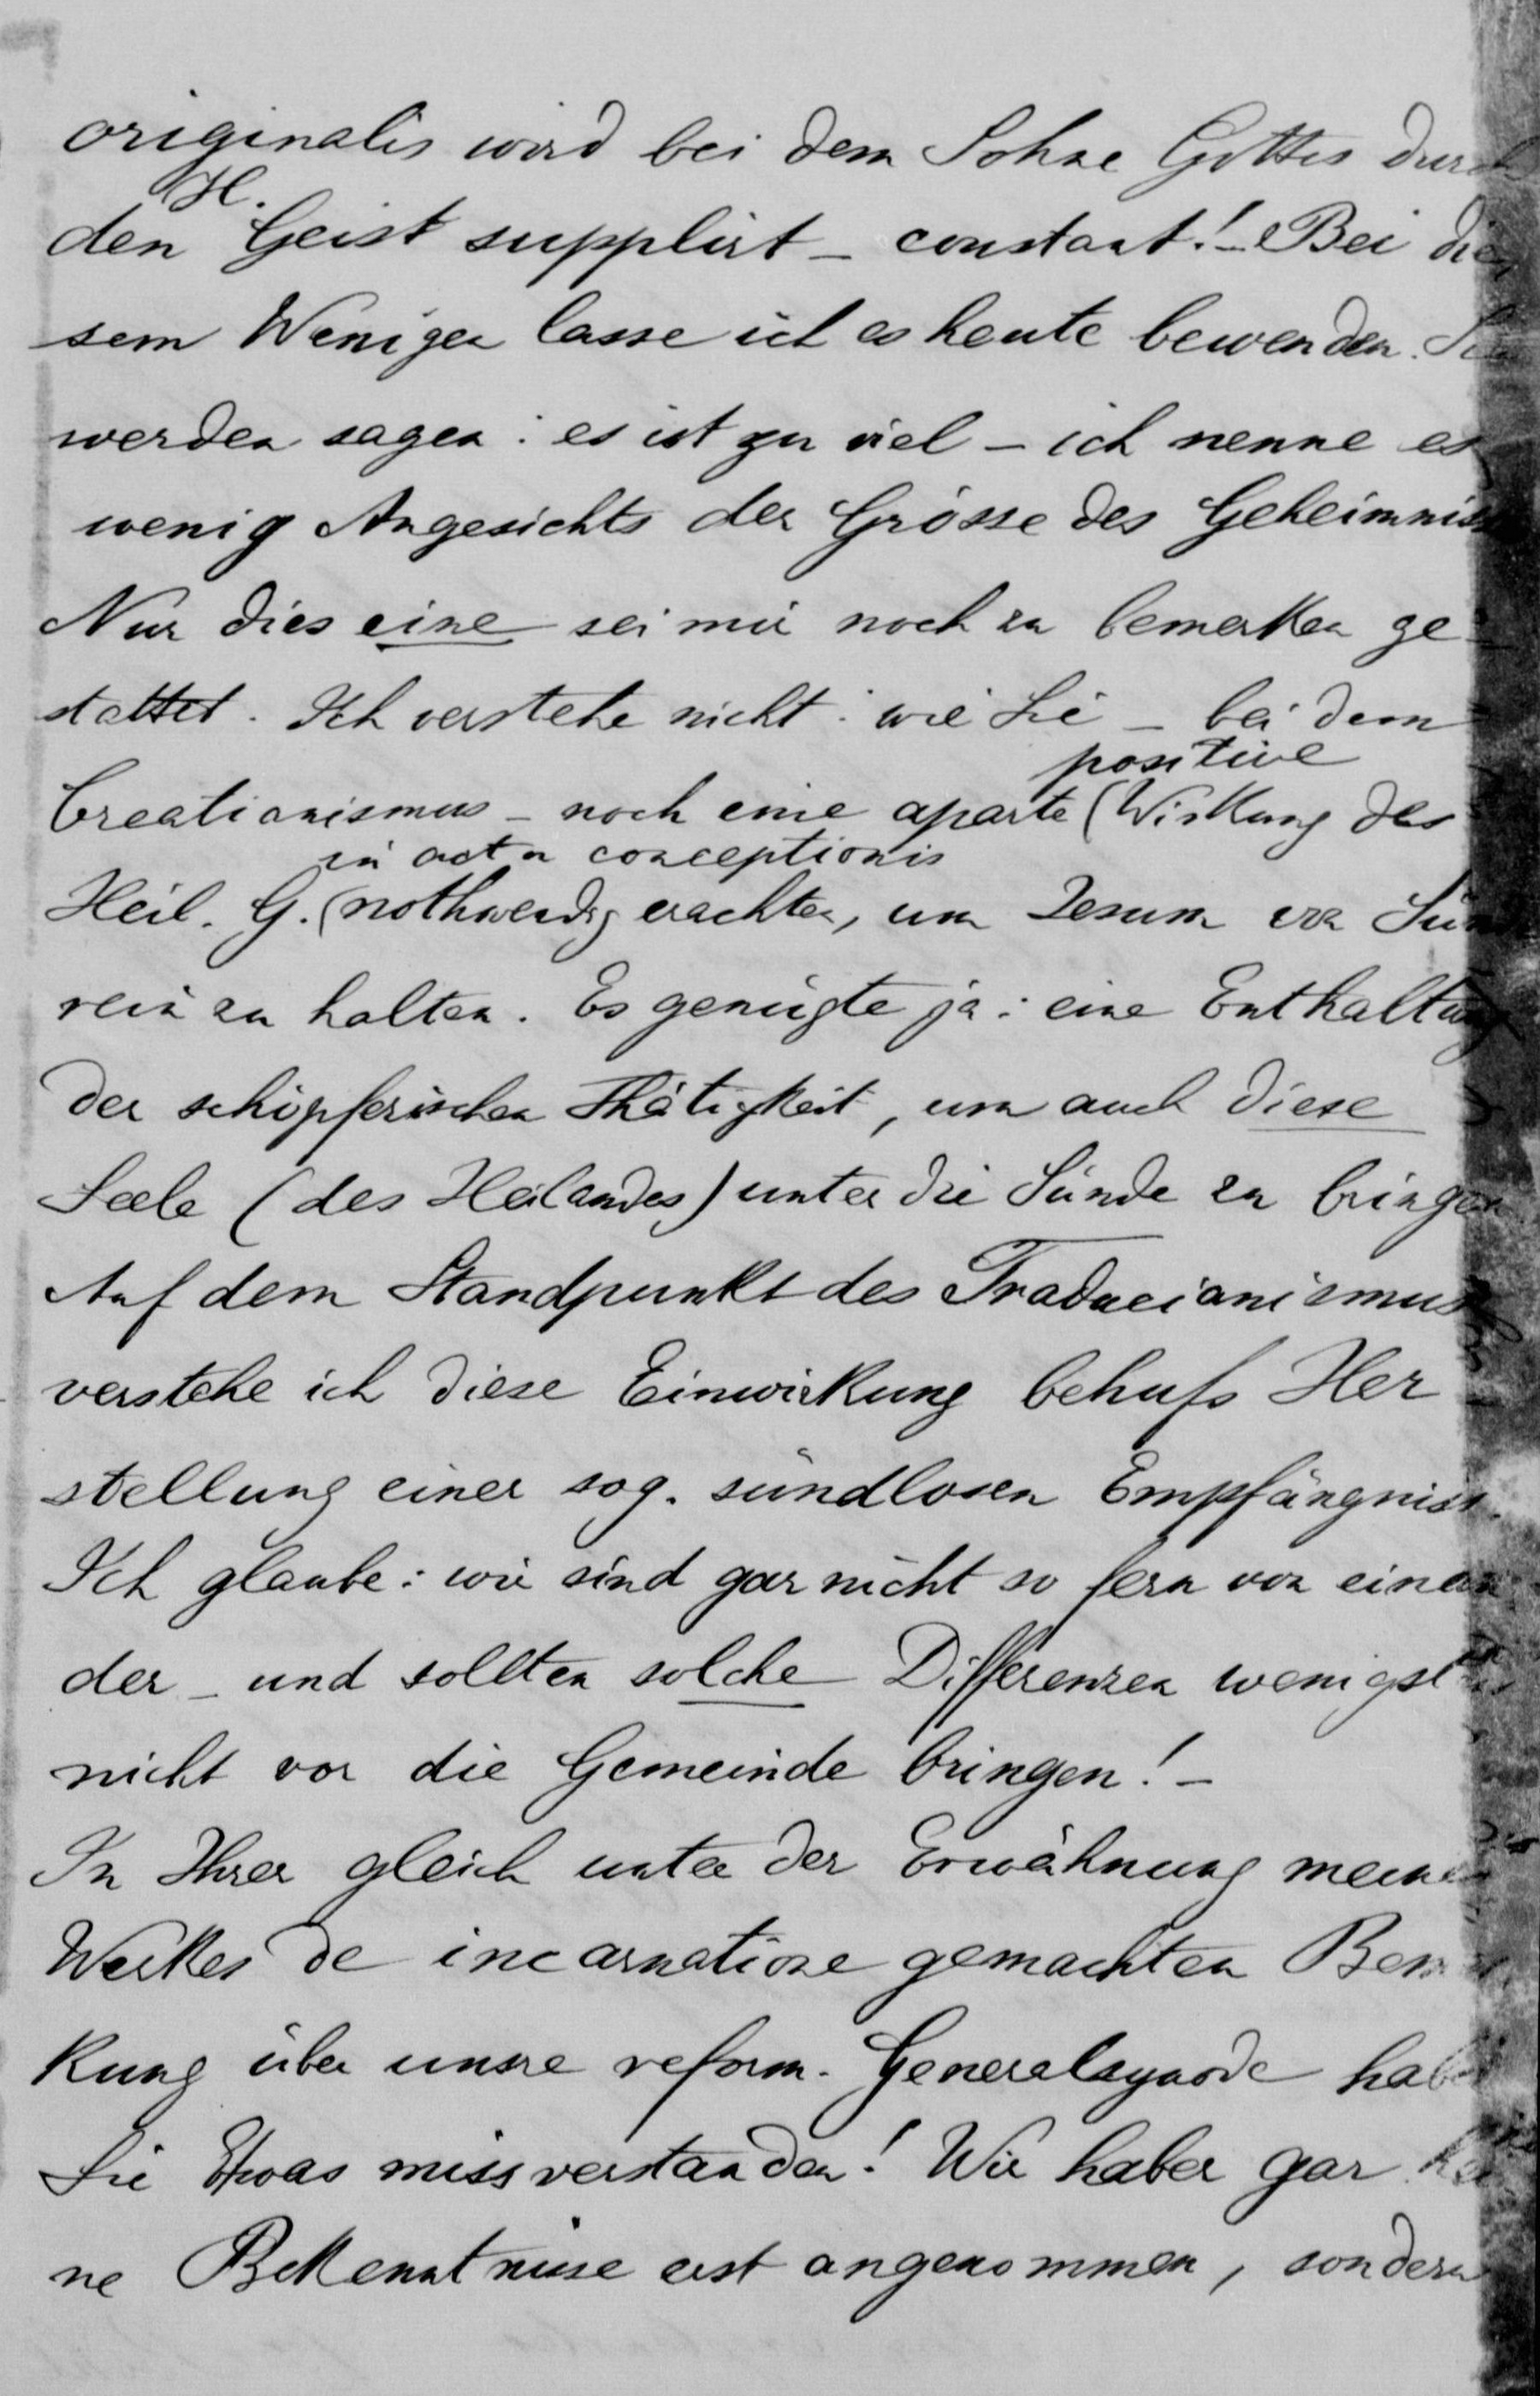 originalis wird bei dem Sohne Gottes durch
H.
den Geist supplirt – constant! – Bei die
sem Wenigen lasse ich es heute bewenden. Sie
werden sagen: es ist zu viel – ich nenne es
wenig Angesichts der Grösse des Geheimniss
Nur dies eine sei mir noch zu bemerken ge-
stattet. Ich verstehe nicht: wie Sie – bei dem
positive
Creatianismus – noch eine aparte (Wirkung des
in actu conceptionis
Heil. G. (nothwendig erachten, um Jesum von Sün
rein zu halten. Es genügte ja: eine Enthaltung
der schöpferischen Thätigkeit, um auch diese
Seele (des Heilandes) unter die Sünde zu bringen
Auf dem Standpunkt des Traducianismus
verstehe ich diese Einwirkung behufs Her
stellung einer sog. sündlosen Empfängniss.
Ich glaube: wir sind gar nicht so fern von einan
der – und sollten solche Differenzen wenigstens
nicht vor die Gemeinde bringen! –
In Ihrer gleich unter der Erwähnung meines
Werkes de incarnatione gemachten Bemer
kung über unsre reform. Generalsynode haben
Sie Etwas missverstanden! Wir haben gar kei
ne Bekenntnisse erst angenommen, sondern